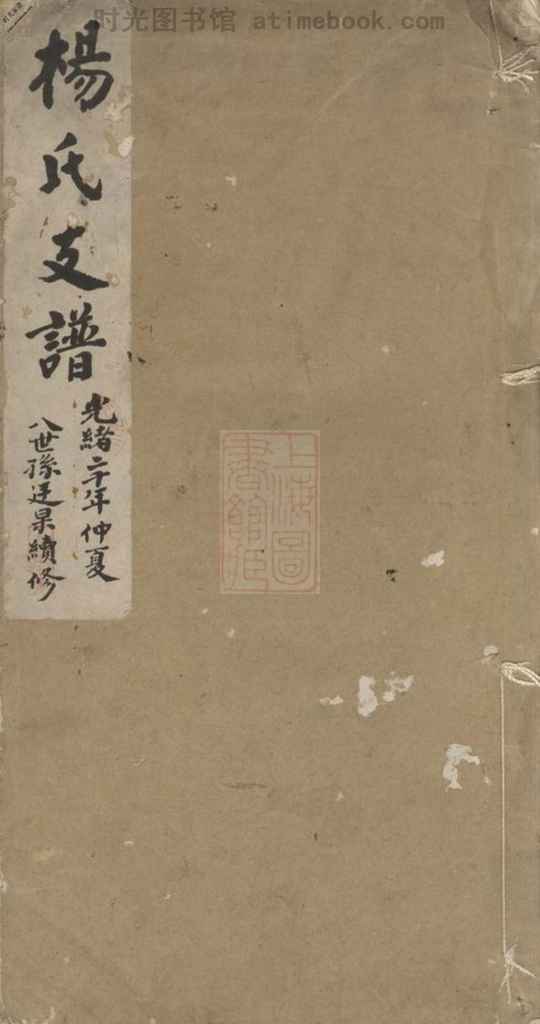 时光图书馆 atimebook.com
楊氏支譜
光緒二十年仲夏
八世孫廷杲續修
上海圖
書館藏